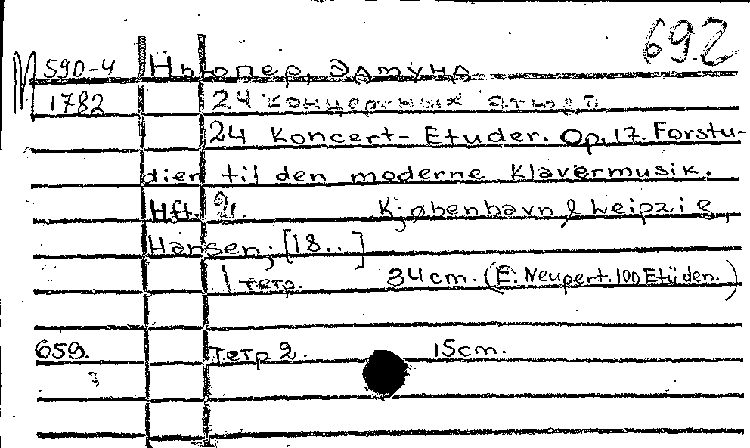 692
M 590-4 Ньюпер, Эдмунд
1782 24 концертных этюда
24 Koncert-Etuder. Op. 17. Forstu-
dier til den moderne Klavermusik.
Hft. 2. Kjøbenhavn & Leipzig,
Hansen, [18..]
1 тетр. 34 cm. (E. Neupert. 100 Etüden.)
659. Тетр 2. 15 cm.